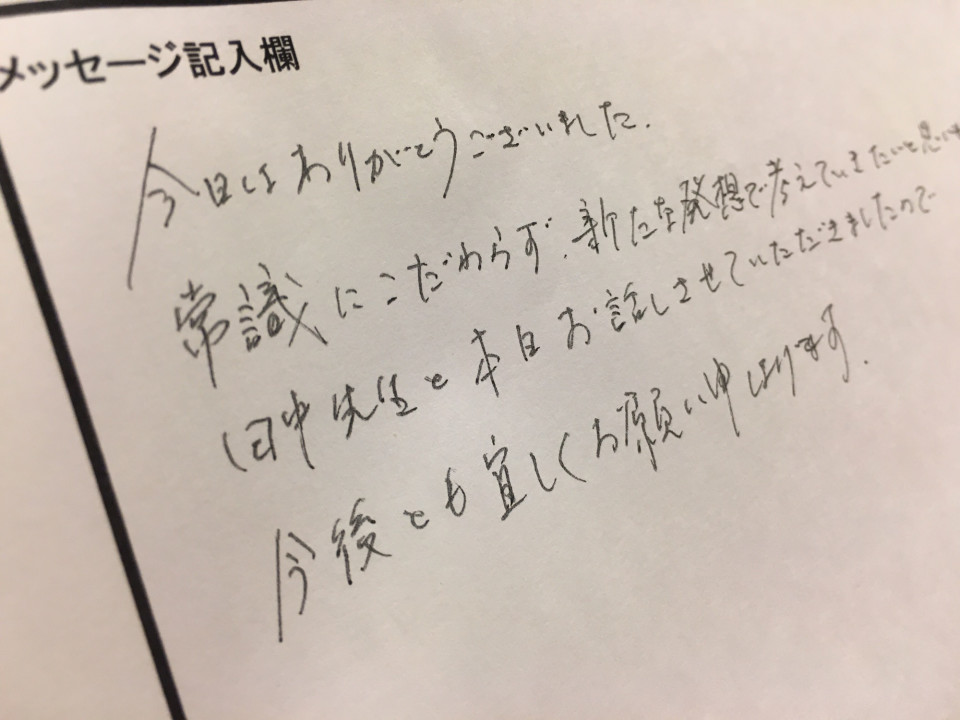 メッセージ記入欄
今日はありがとうございました.
常識にこだわらず.新たな発想で考えていきたいと思いま
田中先生と本日お話しさせていただきましたので
今後とも宜しくお願い申し上げます.